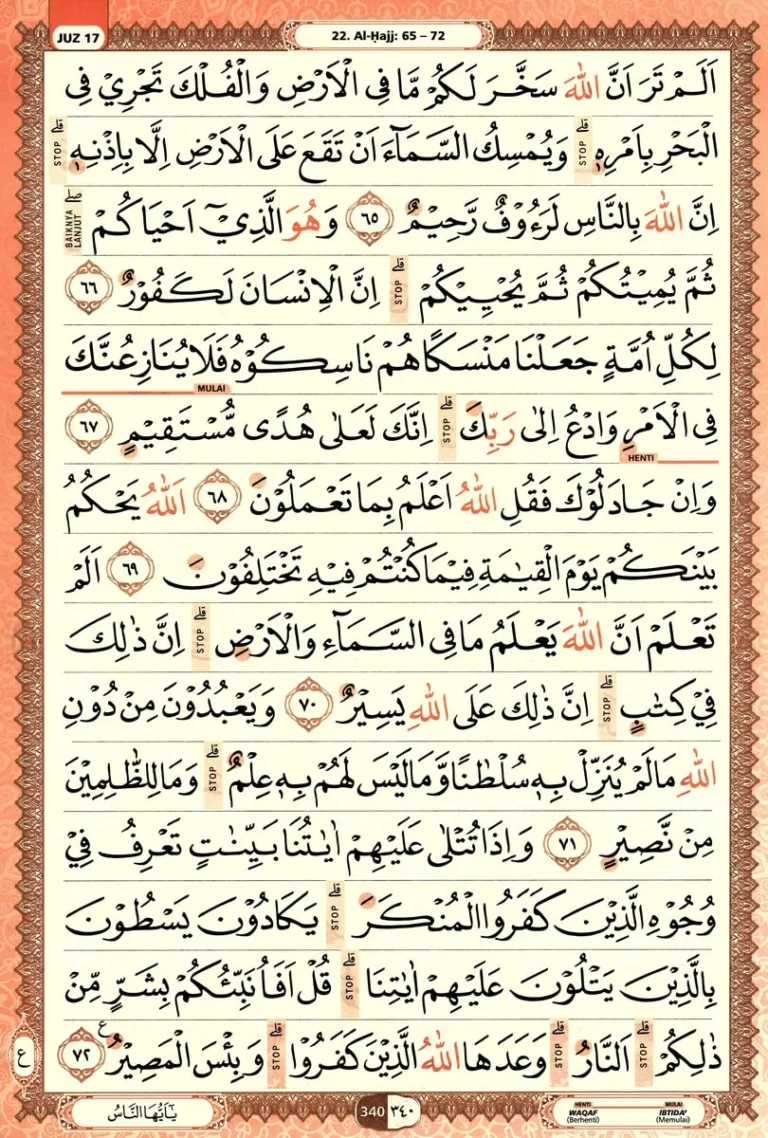 JUZ 17
22. Al-Ḥajj: 65 – 72
اَلَمْ تَرَ اَنَّ اللّٰهَ سَخَّرَ لَكُمْ مَّا فِى الْاَرْضِ وَالْفُلْكَ تَجْرِيْ فِى
الْبَحْرِ بِاَمْرِهٖۗ STOP وَيُمْسِكُ السَّمَاۤءَ اَنْ تَقَعَ عَلَى الْاَرْضِ اِلَّا بِاِذْنِهٖۗ STOP
اِنَّ اللّٰهَ بِالنَّاسِ لَرَءُوْفٌ رَّحِيْمٌ ٦٥ وَهُوَ الَّذِيْٓ اَحْيَاكُمْ ۖ BAIKNYA LANJUT
ثُمَّ يُمِيْتُكُمْ ثُمَّ يُحْيِيْكُمْۗ STOP اِنَّ الْاِنْسَانَ لَكَفُوْرٌ ٦٦
لِكُلِّ اُمَّةٍ جَعَلْنَا مَنْسَكًا هُمْ نَاسِكُوْهُ فَلَا يُنَازِعُنَّكَ
MULAI
فِى الْاَمْرِ وَادْعُ اِلٰى رَبِّكَۗ STOP اِنَّكَ لَعَلٰى هُدًى مُّسْتَقِيْمٍ ٦٧
HENTI
وَاِنْ جَادَلُوْكَ فَقُلِ اللّٰهُ اَعْلَمُ بِمَا تَعْمَلُوْنَ ٦٨ اَللّٰهُ يَحْكُمُ
بَيْنَكُمْ يَوْمَ الْقِيٰمَةِ فِيْمَا كُنْتُمْ فِيْهِ تَخْتَلِفُوْنَ ٦٩ اَلَمْ
تَعْلَمْ اَنَّ اللّٰهَ يَعْلَمُ مَا فِى السَّمَاۤءِ وَالْاَرْضِۗ STOP اِنَّ ذٰلِكَ
فِيْ كِتٰبٍۗ STOP اِنَّ ذٰلِكَ عَلَى اللّٰهِ يَسِيْرٌ ٧٠ وَيَعْبُدُوْنَ مِنْ دُوْنِ
اللّٰهِ مَا لَمْ يُنَزِّلْ بِهٖ سُلْطٰنًا وَّمَا لَيْسَ لَهُمْ بِهٖ عِلْمٌۗ STOP وَمَا لِلظّٰلِمِيْنَ
مِنْ نَّصِيْرٍ ٧١ وَاِذَا تُتْلٰى عَلَيْهِمْ اٰيٰتُنَا بَيِّنٰتٍ تَعْرِفُ فِيْ
وُجُوْهِ الَّذِيْنَ كَفَرُوا الْمُنْكَرَۗ STOP يَكَادُوْنَ يَسْطُوْنَ
بِالَّذِيْنَ يَتْلُوْنَ عَلَيْهِمْ اٰيٰتِنَاۗ STOP قُلْ اَفَاُنَبِّئُكُمْ بِشَرٍّ مِّنْ
ذٰلِكُمْۗ STOP اَلنَّارُۗ STOP وَعَدَهَا اللّٰهُ الَّذِيْنَ كَفَرُوْاۗ STOP وَبِئْسَ الْمَصِيْرُ ࣖ ٧٢
ع
يٰٓاَيُّهَا النَّاسُ
340 ٣٤٠
HENTI WAQAF (Berhenti) MULAI IBTIDA' (Memulai)